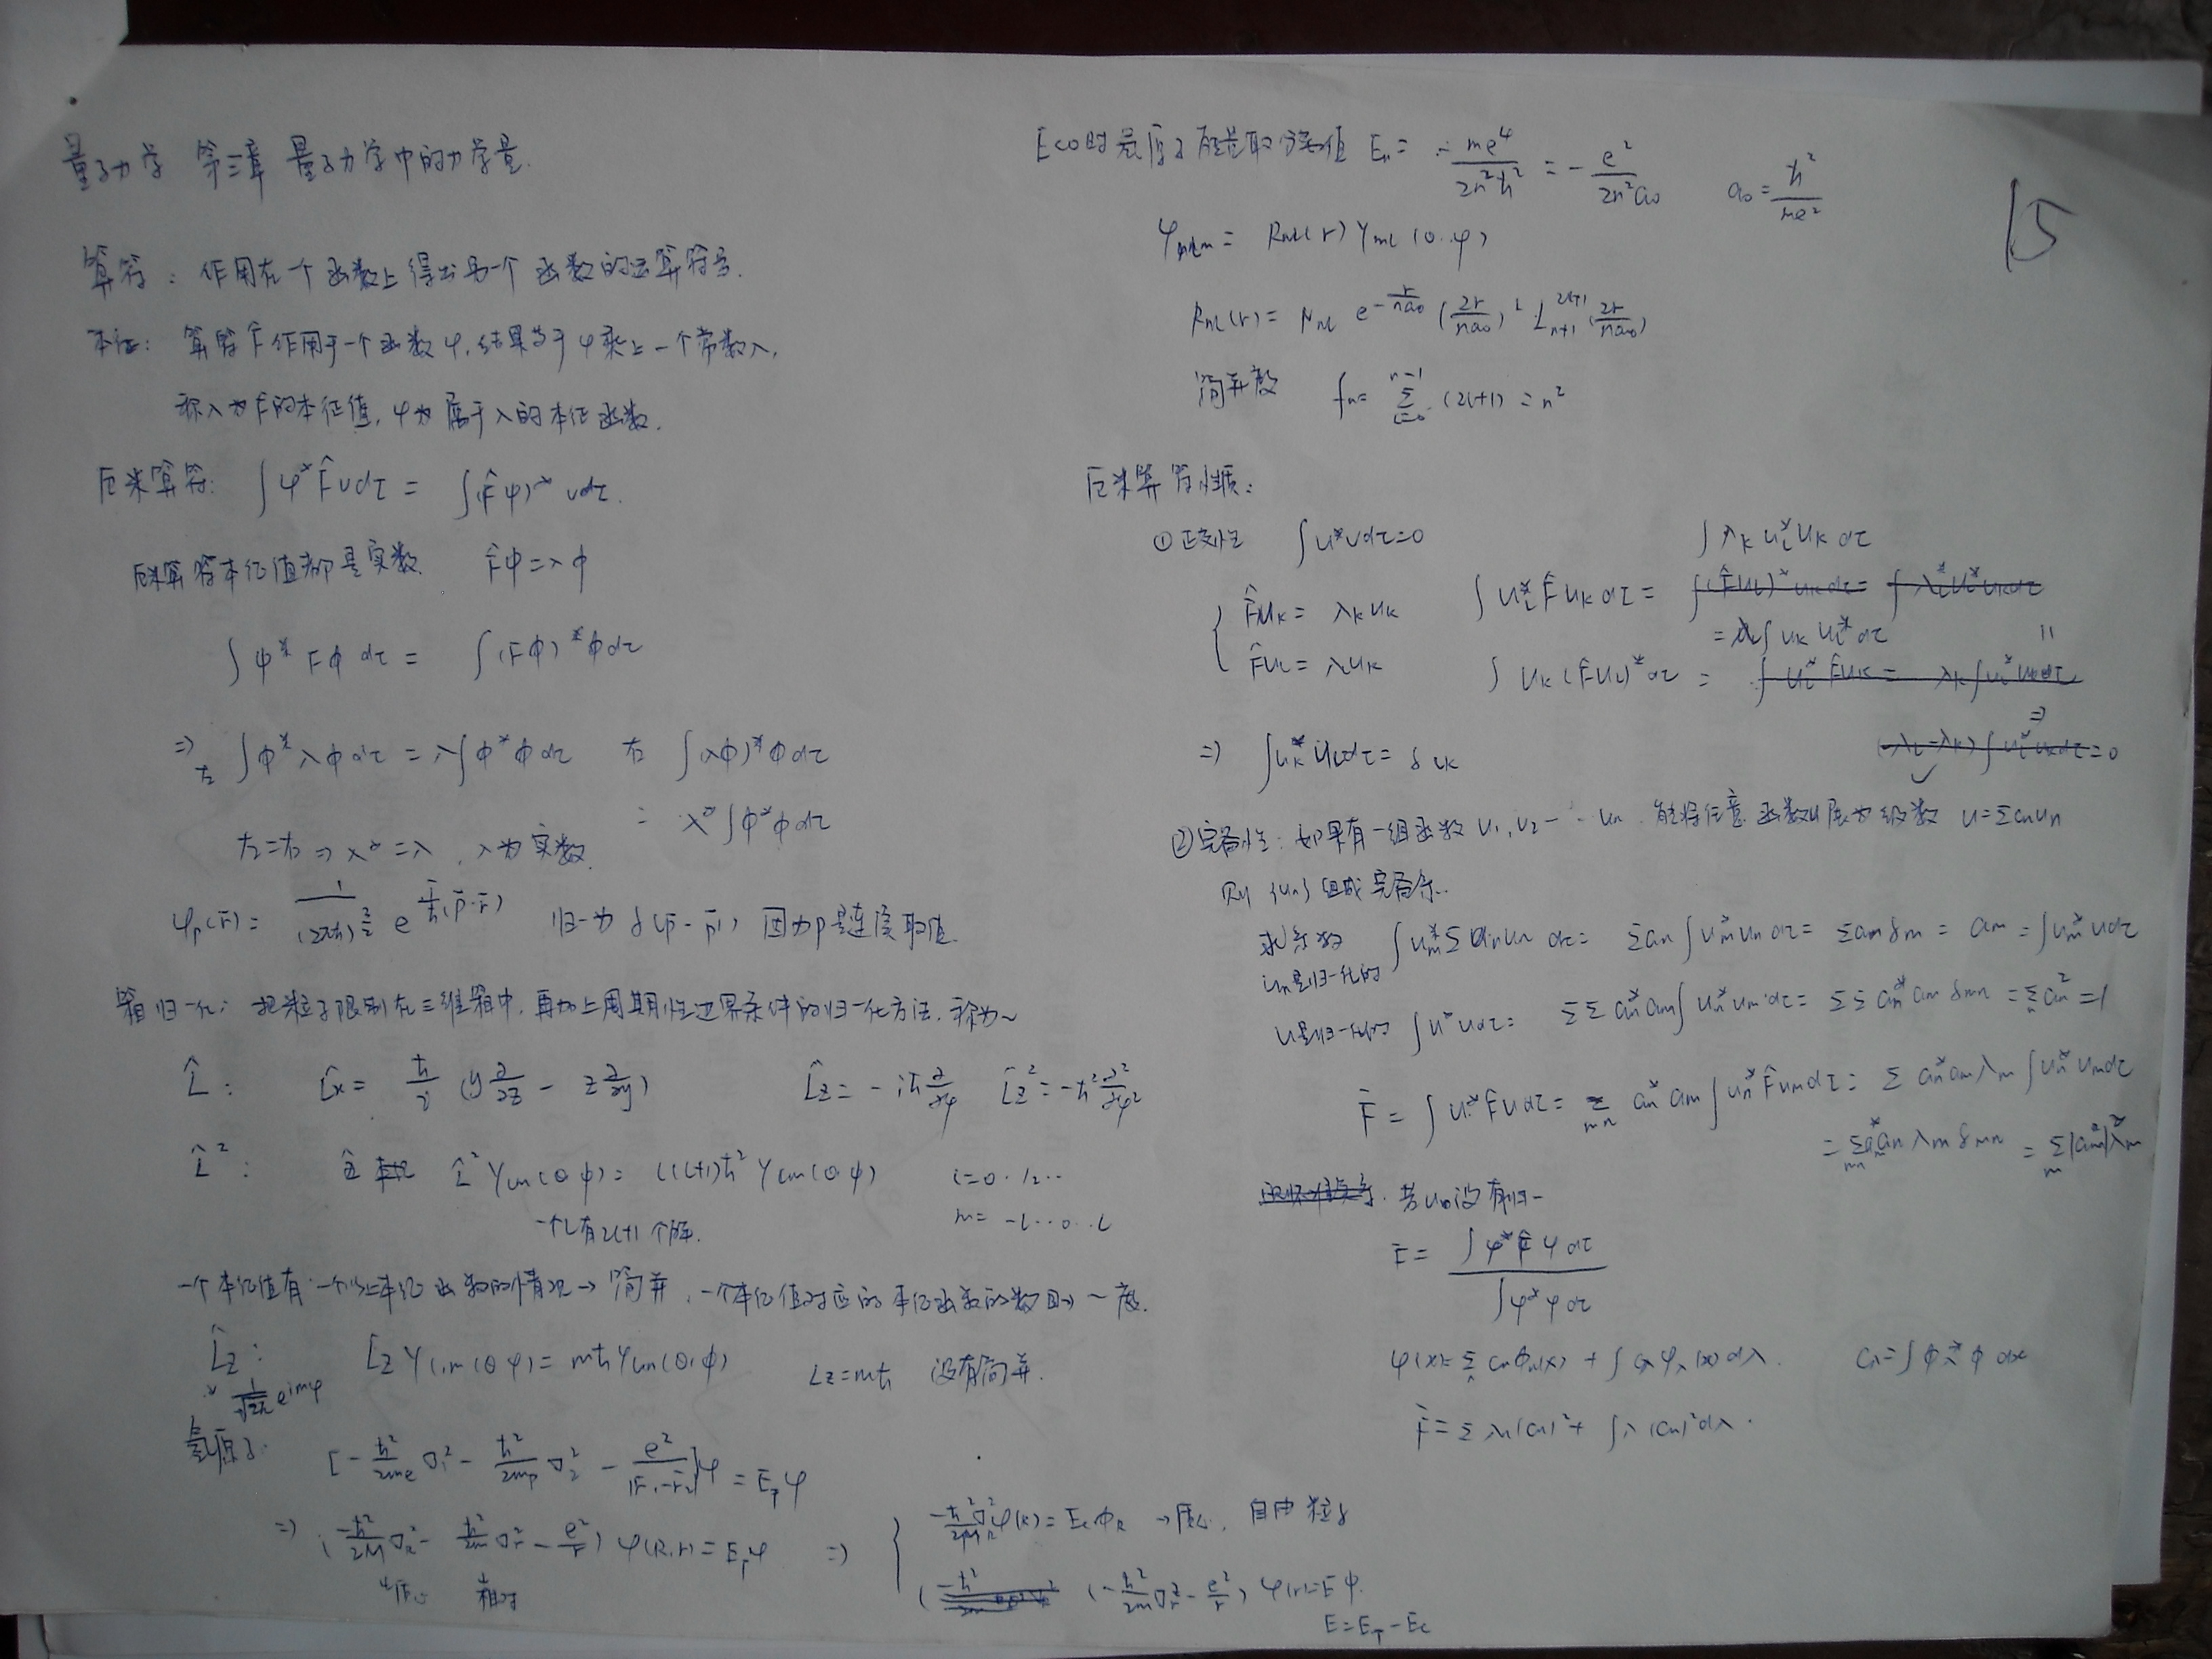 量子力学 第三章 量子力学中的力学量.
算符: 作用在一个函数上得出另一个函数的运算符号.
本征: 算符F̂作用于一个函数ψ,结果等于ψ乘上一个常数λ,
称λ为F̂的本征值,ψ为属于λ的本征函数.
厄米算符: ∫ψ*F̂υdτ = ∫(F̂ψ)*υdτ.
厄米算符本征值都是实数 F̂φ=λφ
∫φ*Fφdτ = ∫(Fφ)*φdτ
⇒ 左 ∫φ*λφdτ = λ∫φ*φdτ 右 ∫(λφ)*φdτ
= λ*∫φ*φdτ
左=右 ⇒ λ*=λ, λ为实数.
ψp(r⃗) = 1/(2πħ)^(3/2) e^(i/ħ(p⃗·r⃗)) 归一为δ(p⃗-p⃗') 因为p是连度取值.
箱归一化: 把粒子限制在三维箱中,再加上周期性边界条件的归一化方法,称为~
L̂: L̂x = ħ/i (y∂/∂z - z∂/∂y) L̂z = -iħ∂/∂φ L̂z² = -ħ²∂²/∂φ²
L̂²: L̂²Ylm(θφ) = l(l+1)ħ²Ylm(θφ) l=0.1.2..
m = -l...0..l
一个l有2l+1个解.
一个本征值有一个以上本征函数的情况→简并,一个本征值对应的本征函数的数目→~度.
L̂z: L̂zYlm(θφ) = mħYlm(θ,φ) Lz=mħ 没有简并.
1/√2π e^imφ
氢原子: [-ħ²/2me ∇₁² - ħ²/2mp ∇₂² - e²/|r⃗₁-r⃗₂|]ψ = E_Tψ
⇒ (-ħ²/2M ∇R² - ħ²/2m ∇r² - e²/r) ψ(R,r) = E_Tψ ⇒
质心 相对
-ħ²/2M ∇R²φ(R) = Ecφ_R → 质心, 自由粒子
(-ħ²/2m ∇r² - e²/r) ψ(r) = Eψ.
E = E_T - Ec
E<0时氢原子能量取分离值 En = -me⁴/2n²ħ² = -e²/2n²a₀ a₀ = ħ²/me²
15
ψnlm = Rnl(r) Yml(θ.φ)
Rnl(r) = Nnl e^(-r/na₀) (2r/na₀)^l L_(n+1)^(2l+1) (2r/na₀)
简并度 fn = Σ_(l=0)^(n-1) (2l+1) = n²
厄米算符性质:
①正交性 ∫u*υdτ=0
∫λk ul*uk dτ
F̂uk = λkuk ∫ul*F̂ukdτ = ∫(F̂ul)*ukdτ = ∫λl*ul*ukdτ
= λk∫uk ul*dτ
F̂ul = λuk ∫uk(F̂ul)*dτ = ∫ul*F̂uk = λk∫ul*ukdτ
⇒ ∫uk*uldτ = δlk
(λl-λk)∫ul*ukdτ=0
②完备性: 如果有一组函数u₁,u₂…un 能将任意函数u展为级数 u=Σanun
则{un}组成完备系.
求系数
un是归一化的 ∫um*Σanundτ = Σan∫um*undτ = Σamδm = am = ∫um*udτ
u是归一化的 ∫u*udτ = ΣΣan*am∫un*umdτ = ΣΣan*amδmn = Σan² = 1
F̄ = ∫u*F̂udτ = Σmn an*am∫un*F̂umdτ = Σan*amλm∫un*umdτ
= Σmn am*anλmδmn = Σm|am|²λm
若u没有归一
F̄ = ∫ψ*F̂ψdτ / ∫ψ*ψdτ
ψ(x) = Σcnφn(x) + ∫cλφλ(x)dλ. cλ = ∫φλ*φdx
F̄ = Σλn|cn|² + ∫λ|cn|²dλ.